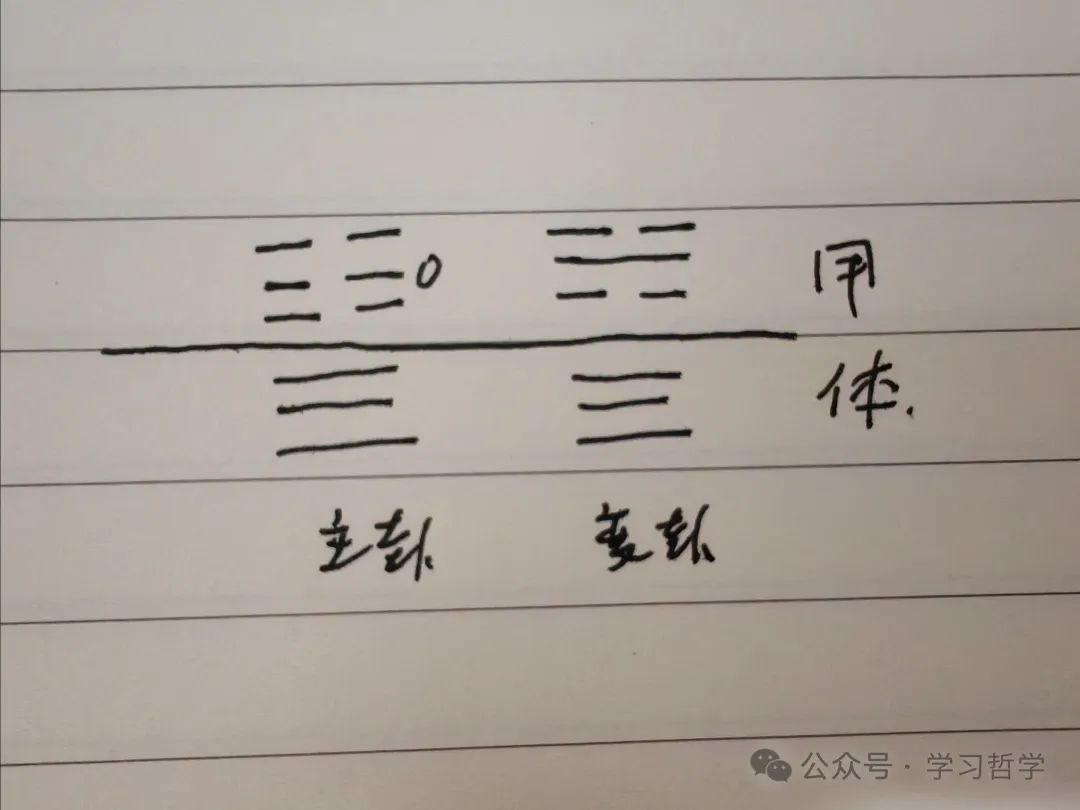 用
体.
主卦 变卦
公众号·学习哲学